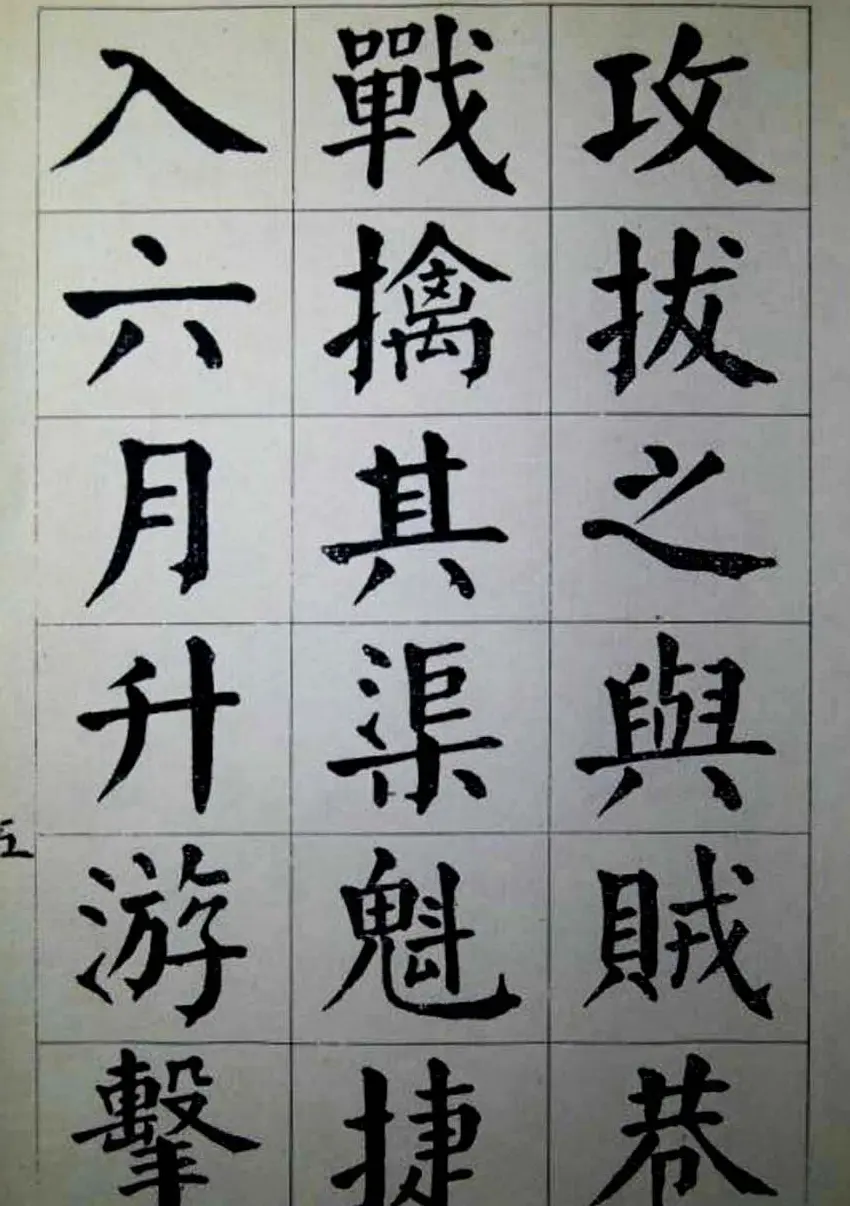 攻拔之與賊巷
戰擒其渠魁捷
入六月升游擊